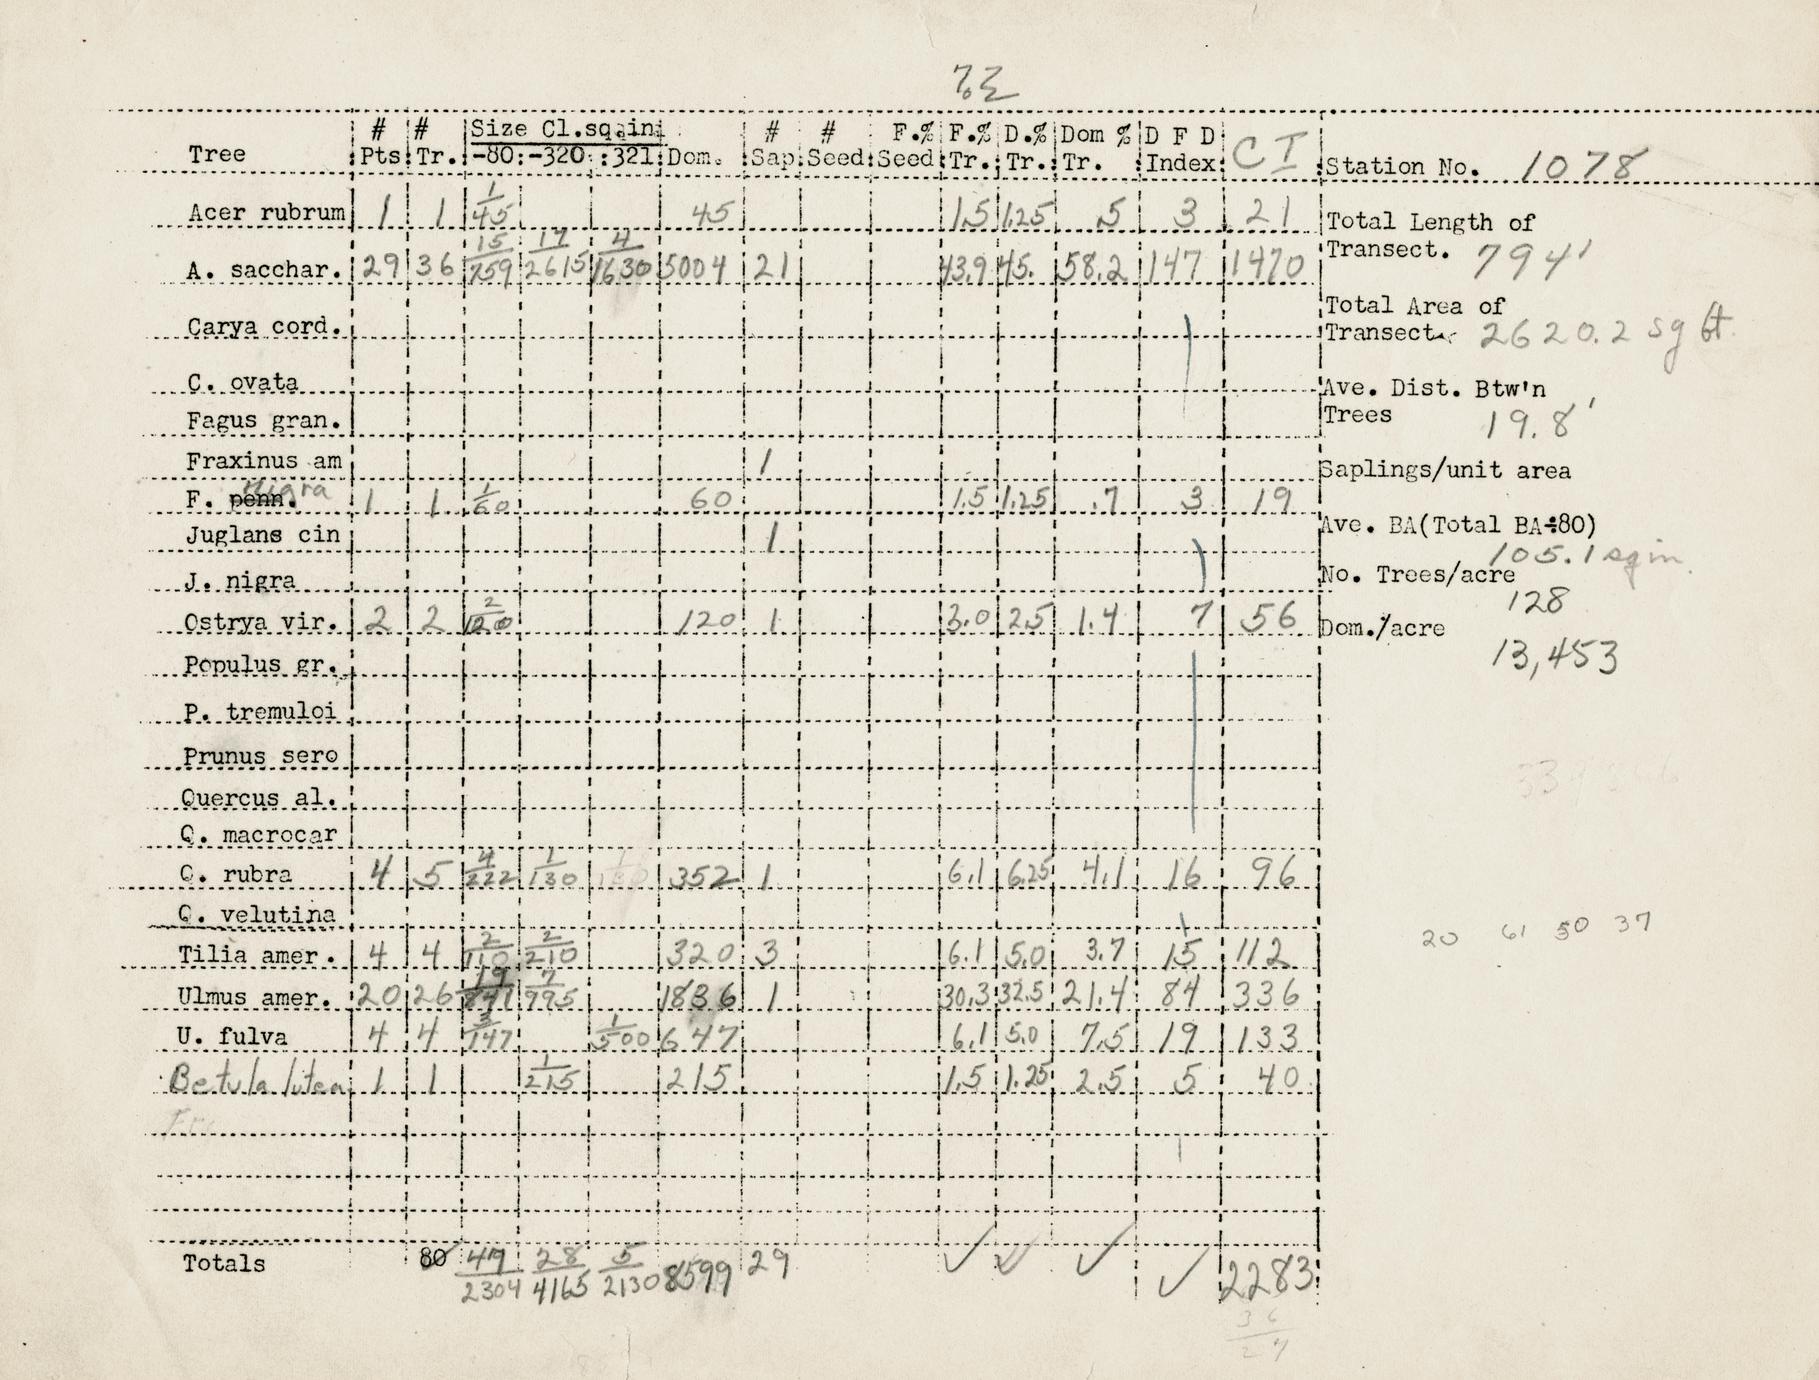 # # Size Cl.sq.in # # F.% F.% D.% Dom % D F D
Tree Pts Tr. -80: -320 :321 Dom. Sap Seed Seed Tr. Tr. Tr. Index C I Station No. 1078
1
Acer rubrum 1 1 45 45 1.5 1.25 .5 3 21 Total Length of
15 17 4
A. sacchar. 29 36 759 2615 1630 5004 21 43.9 45. 58.2 147 1470 Transect. 794'
Total Area of
Carya cord. Transect. 2620.2 sq ft.
C. ovata Ave. Dist. Btw'n
Fagus gran. Trees 19.8'
Fraxinus am 1 Saplings/unit area
Nigra 1
F. penn. 1 1 60 60 1.5 1.25 .7 3 19
Juglans cin 1 Ave. BA(Total BA÷80)
105.1 sq in.
J. nigra No. Trees/acre
2 128
Ostrya vir. 2 2 120 120 1 3.0 2.5 1.4 7 56 Dom./acre
Populus gr. 13,453
P. tremuloi
Prunus sero
Quercus al.
Q. macrocar
4 1 1
Q. rubra 4 5 222 130 130 352 1 6.1 6.25 4.1 16 96
Q. velutina 20 61 50 37
2 2
Tilia amer. 4 4 110 210 320 3 6.1 5.0 3.7 15 112
19 7
Ulmus amer. 20 26 841 995 1836 1 30.3 32.5 21.4 84 336
3 1
U. fulva 4 4 147 500 647 6.1 5.0 7.5 19 133
1
Betula lutea 1 1 215 215 1.5 1.25 2.5 5 40
Totals 80 47 28 5 8599 29 2283
2304 4165 2130